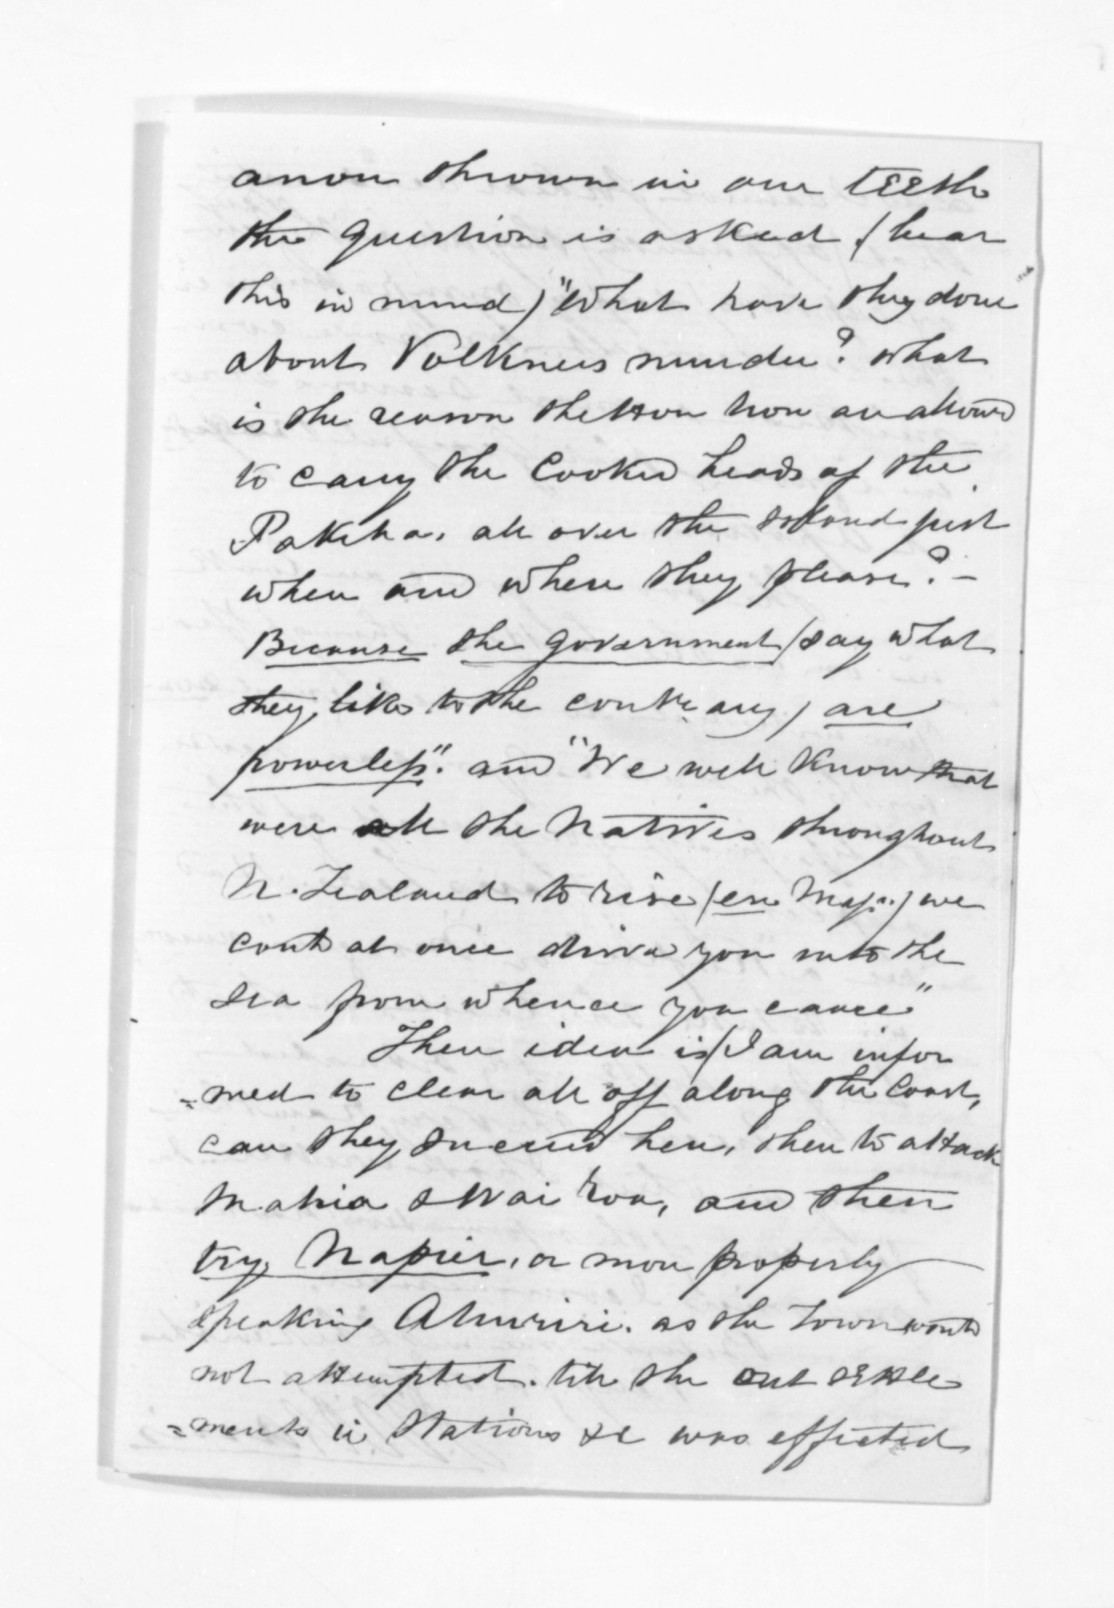 anon thrown in our teeth
the question is asked (bear
this in mind) "What have they done
about Volkners murder? what
is the reason the Hau Hau are allowed
to carry the cooked heads of the
Pakeha, all over the Island just
when and where they please? -
Because the government (say what
they like to the contrary) are
powerless". and "We well know that
were all the Natives throughout
N. Zealand to rise (en Mass.) we
could at once drive you into the
sea from whence you came"
Their idea is (I am infor
=med to clear all off along the Coast,
can they succeed here, then to attack
Mahia & Wai roa, and then
try Napier, or more properly
speaking Ahuriri. as the Town would
not attempted. till the out settle
=ments in Stations &c was effected